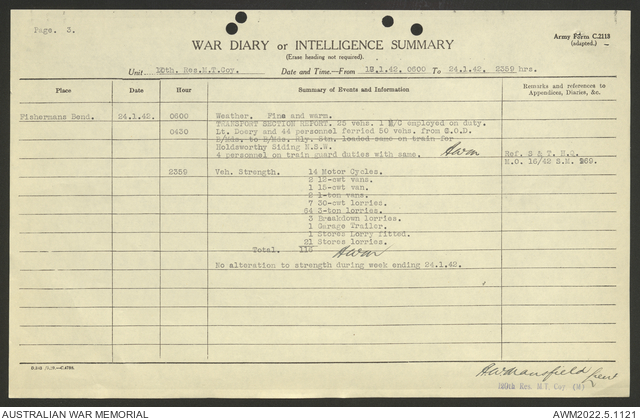 Page. 3.
Army Form C.2118
(adapted.)
WAR DIARY or INTELLIGENCE SUMMARY
(Erase heading not required).
Unit Res.M.T.Coy. Date and Time—From 1.42. 0600 To 24.1.42. 2359 hrs.
Place Date Hour Summary of Events and Information Remarks and references to Appendices, Diaries, &c.
Fishermans Bend. 24.1.42. 0600 Weather. Fine and warm.
TRANSPORT SECTION REPORT. 25 vehs. 1 M/C employed on duty.
0430 Lt. Doery and 44 personnel ferried 50 vehs. from C.O.D.
B/Mds. to B/Mds. Rly. Stn. loaded same on train for
Holdsworthy Siding N.S.W.
4 personnel on train guard duties with same. Ref. S & T. H.Q.
M.O. 16/42 S.M. 269.
2359 Veh. Strength. 14 Motor Cycles.
2 12-cwt vans.
1 15-cwt van.
2 1-ton vans.
7 30-cwt lorries.
64 3-ton lorries.
3 Breakdown lorries.
1 Garage Trailer.
1 Stores Lorry fitted.
21 Stores lorries.
Total. 116
No alteration to strength during week ending 24.1.42.
A.W. Mansfield Lieut
Res. M.T. Coy (M)
AUSTRALIAN WAR MEMORIAL AWM2022.5.1121